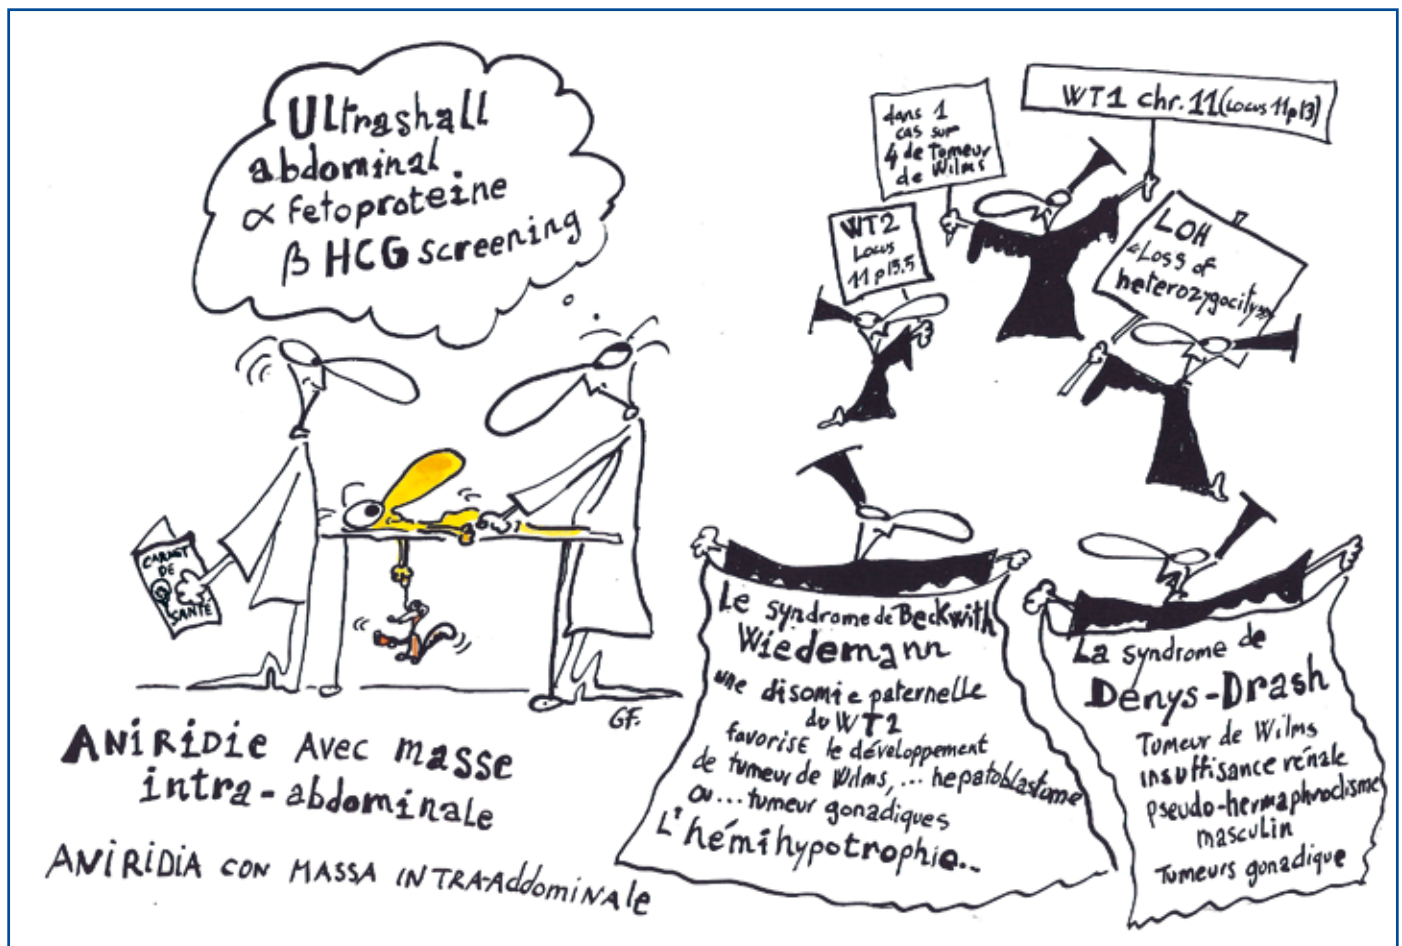 Ultrashall
abdominal
α fetoproteine
β HCG screening
CARNET
DE
SANTÉ
GF.
ANIRIDIE AVEC masse
intra-abdominale
ANIRIDIA CON MASSA INTRA-Addominale
dans 1
cas sur
4 de Tumeur
de Wilms
WT1 chr. 11 (Locus 11p13)
WT2
Locus
11p15.5
LOH
«Loss of
heterozygocity»
Le syndrome de Beckwith
Wiedemann
une disomie paternelle
du WT2
favorise le développement
de tumeur de Wilms, ... hepatoblastome
ou... tumeur gonadiques
L'hémihypotrophie...
La syndrome de
Denys-Drash
Tumeur de Wilms
insuffisance rénale
pseudo-hermaphrodisme
masculin
Tumeurs gonadique